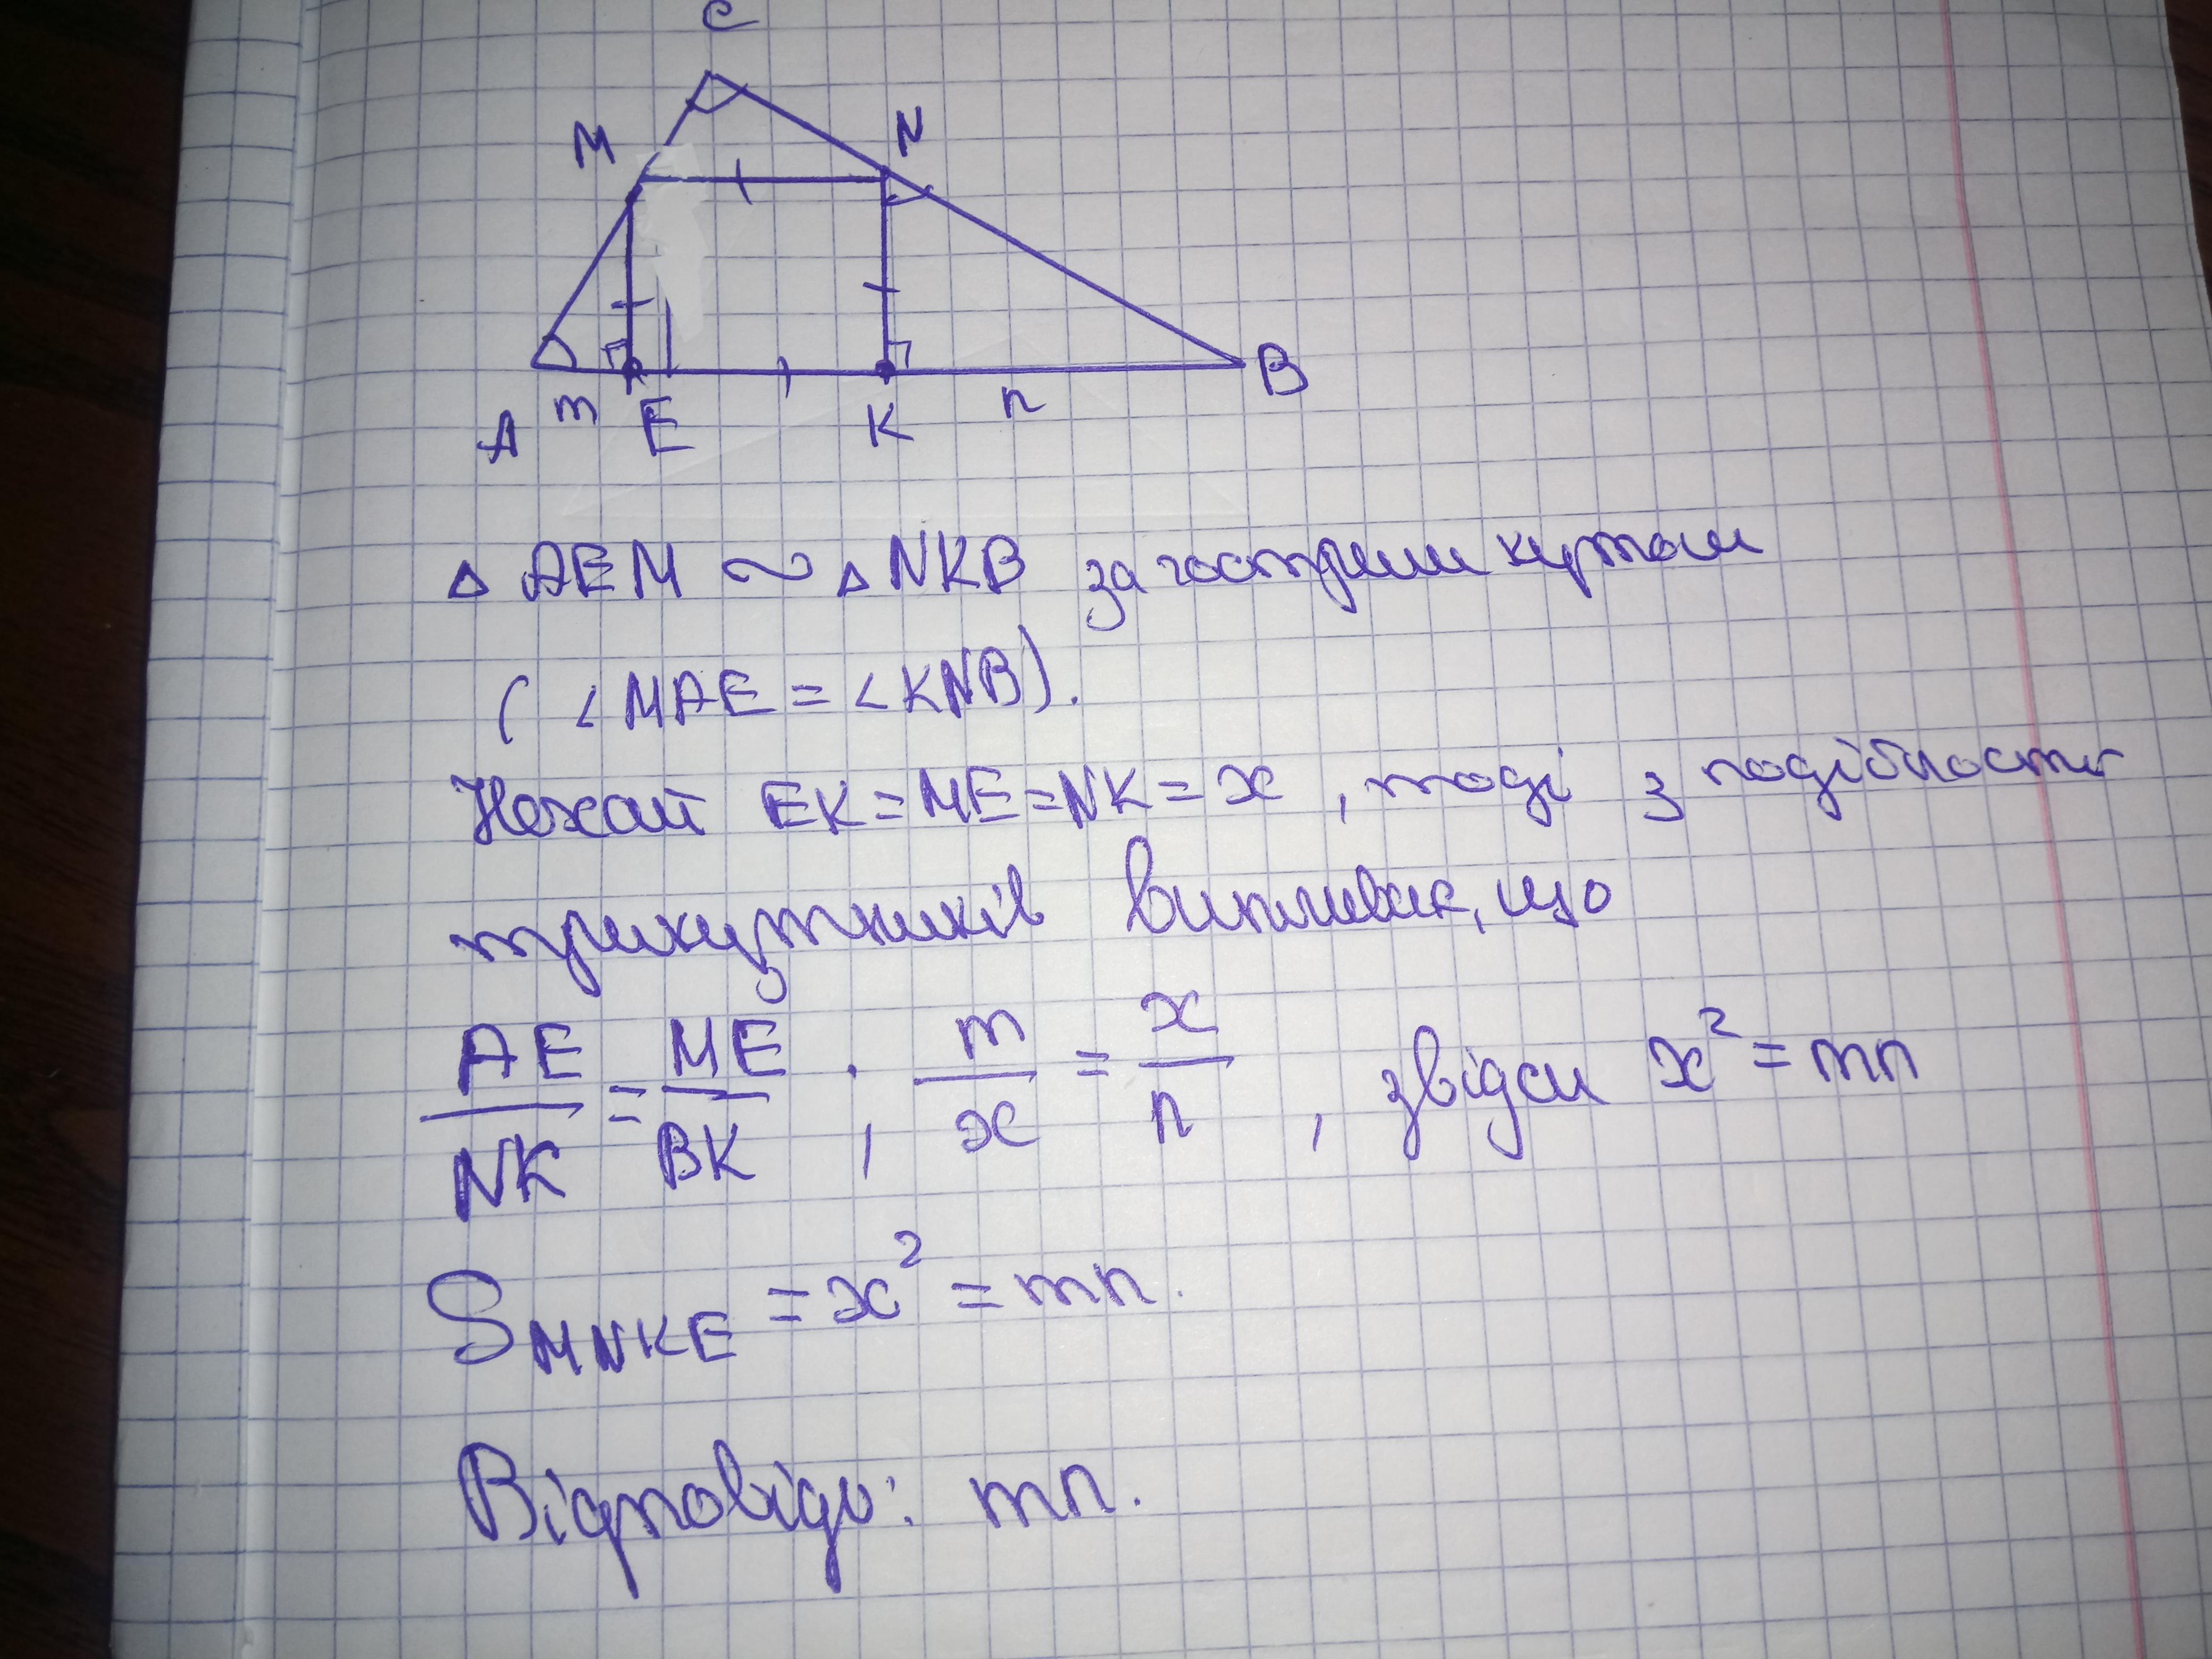 C
M N
A m E K n B
△ AEM ~ △ NKB за гострим кутом
( ∠MAE = ∠KNB ).
Нехай EK = ME = NK = x , тоді з подібності
трикутників випливає, що
AE/NK = ME/BK ; m/x = x/n , звідси x² = mn
S_MNKE = x² = mn.
Відповідь: mn.